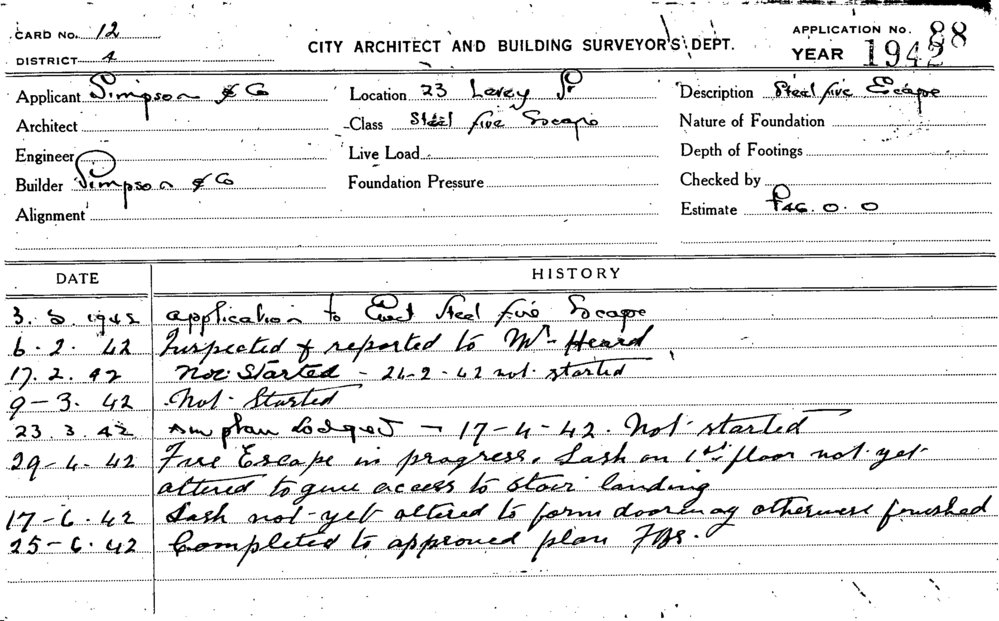 CARD No. 12
DISTRICT 4
CITY ARCHITECT AND BUILDING SURVEYOR'S DEPT.
APPLICATION No. 88
YEAR 1942
Applicant Simpson & Co
Location 23 Levey St
Description Steel fire Escape
Architect
Class Steel fire Escape
Nature of Foundation
Engineer
Live Load
Depth of Footings
Builder Simpson & Co
Foundation Pressure
Checked by
Alignment
Estimate £46.0.0
DATE HISTORY
3. 2. 1942 application to Erect Steel fire Escape
6. 2. 42 Inspected & reported to Mr Heard
17. 2. 42 Not Started - 24-2-42 not started
9-3. 42 Not Started
23. 3. 42 plan Lodged - 17-4-42. Not started
29-4. 42 Fire Escape in progress. Sash on 1st floor not yet
altered to give access to stair landing
17-6. 42 Sash not yet altered to form doorway otherwise finished
25-6. 42 Completed to approved plan